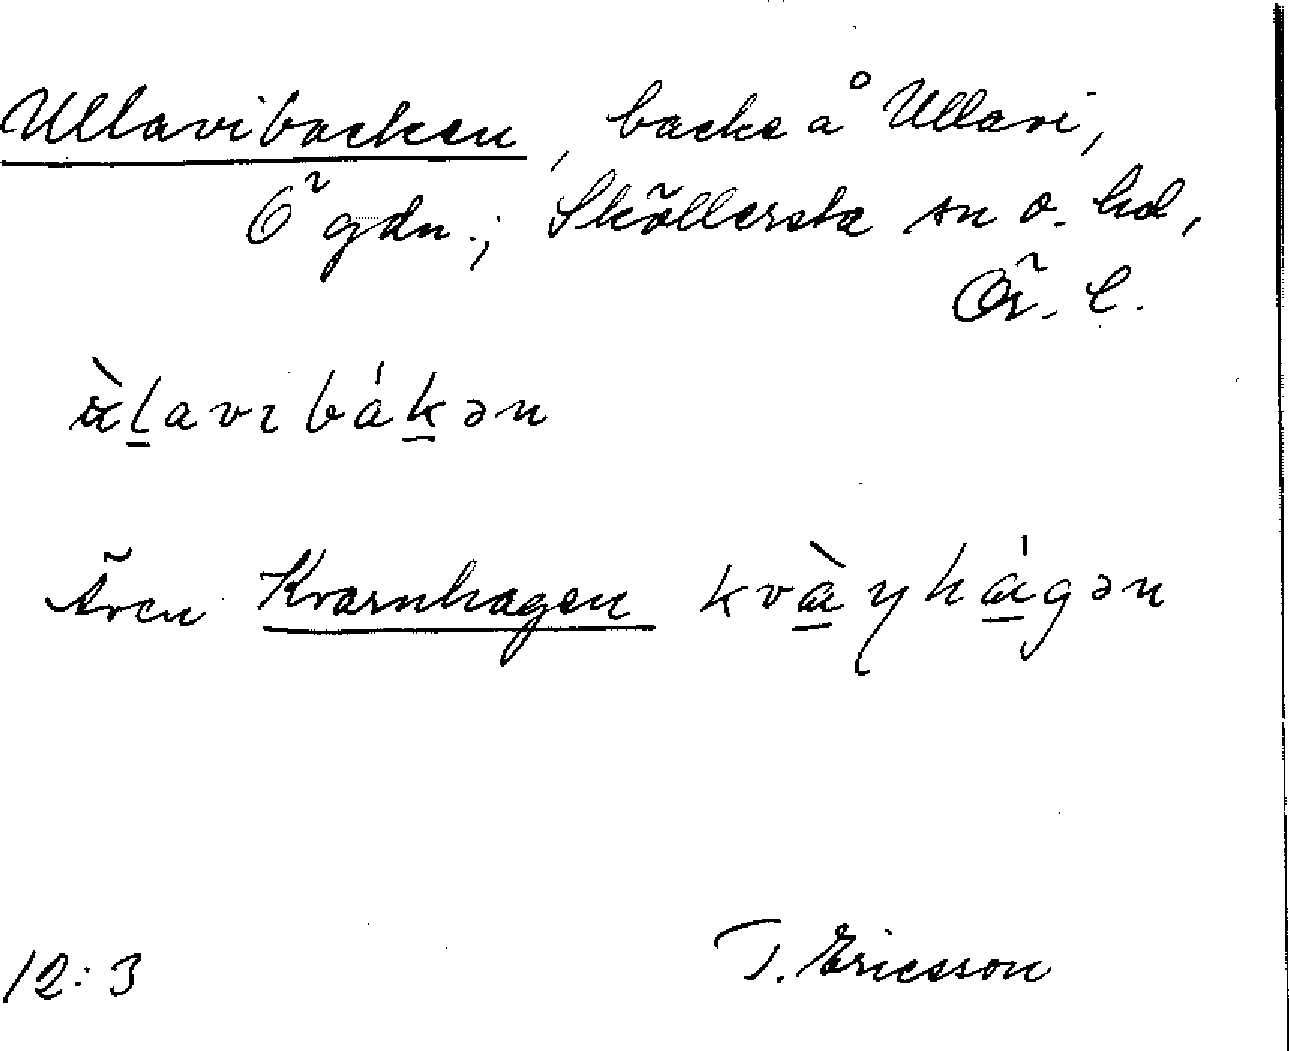 Ullavibacken, backe å Ullavi,
Ö gdn.; Sköllersta sn o. hd,
Ör. l.
Även Kvarnhagen
12:3 T. Ericsson